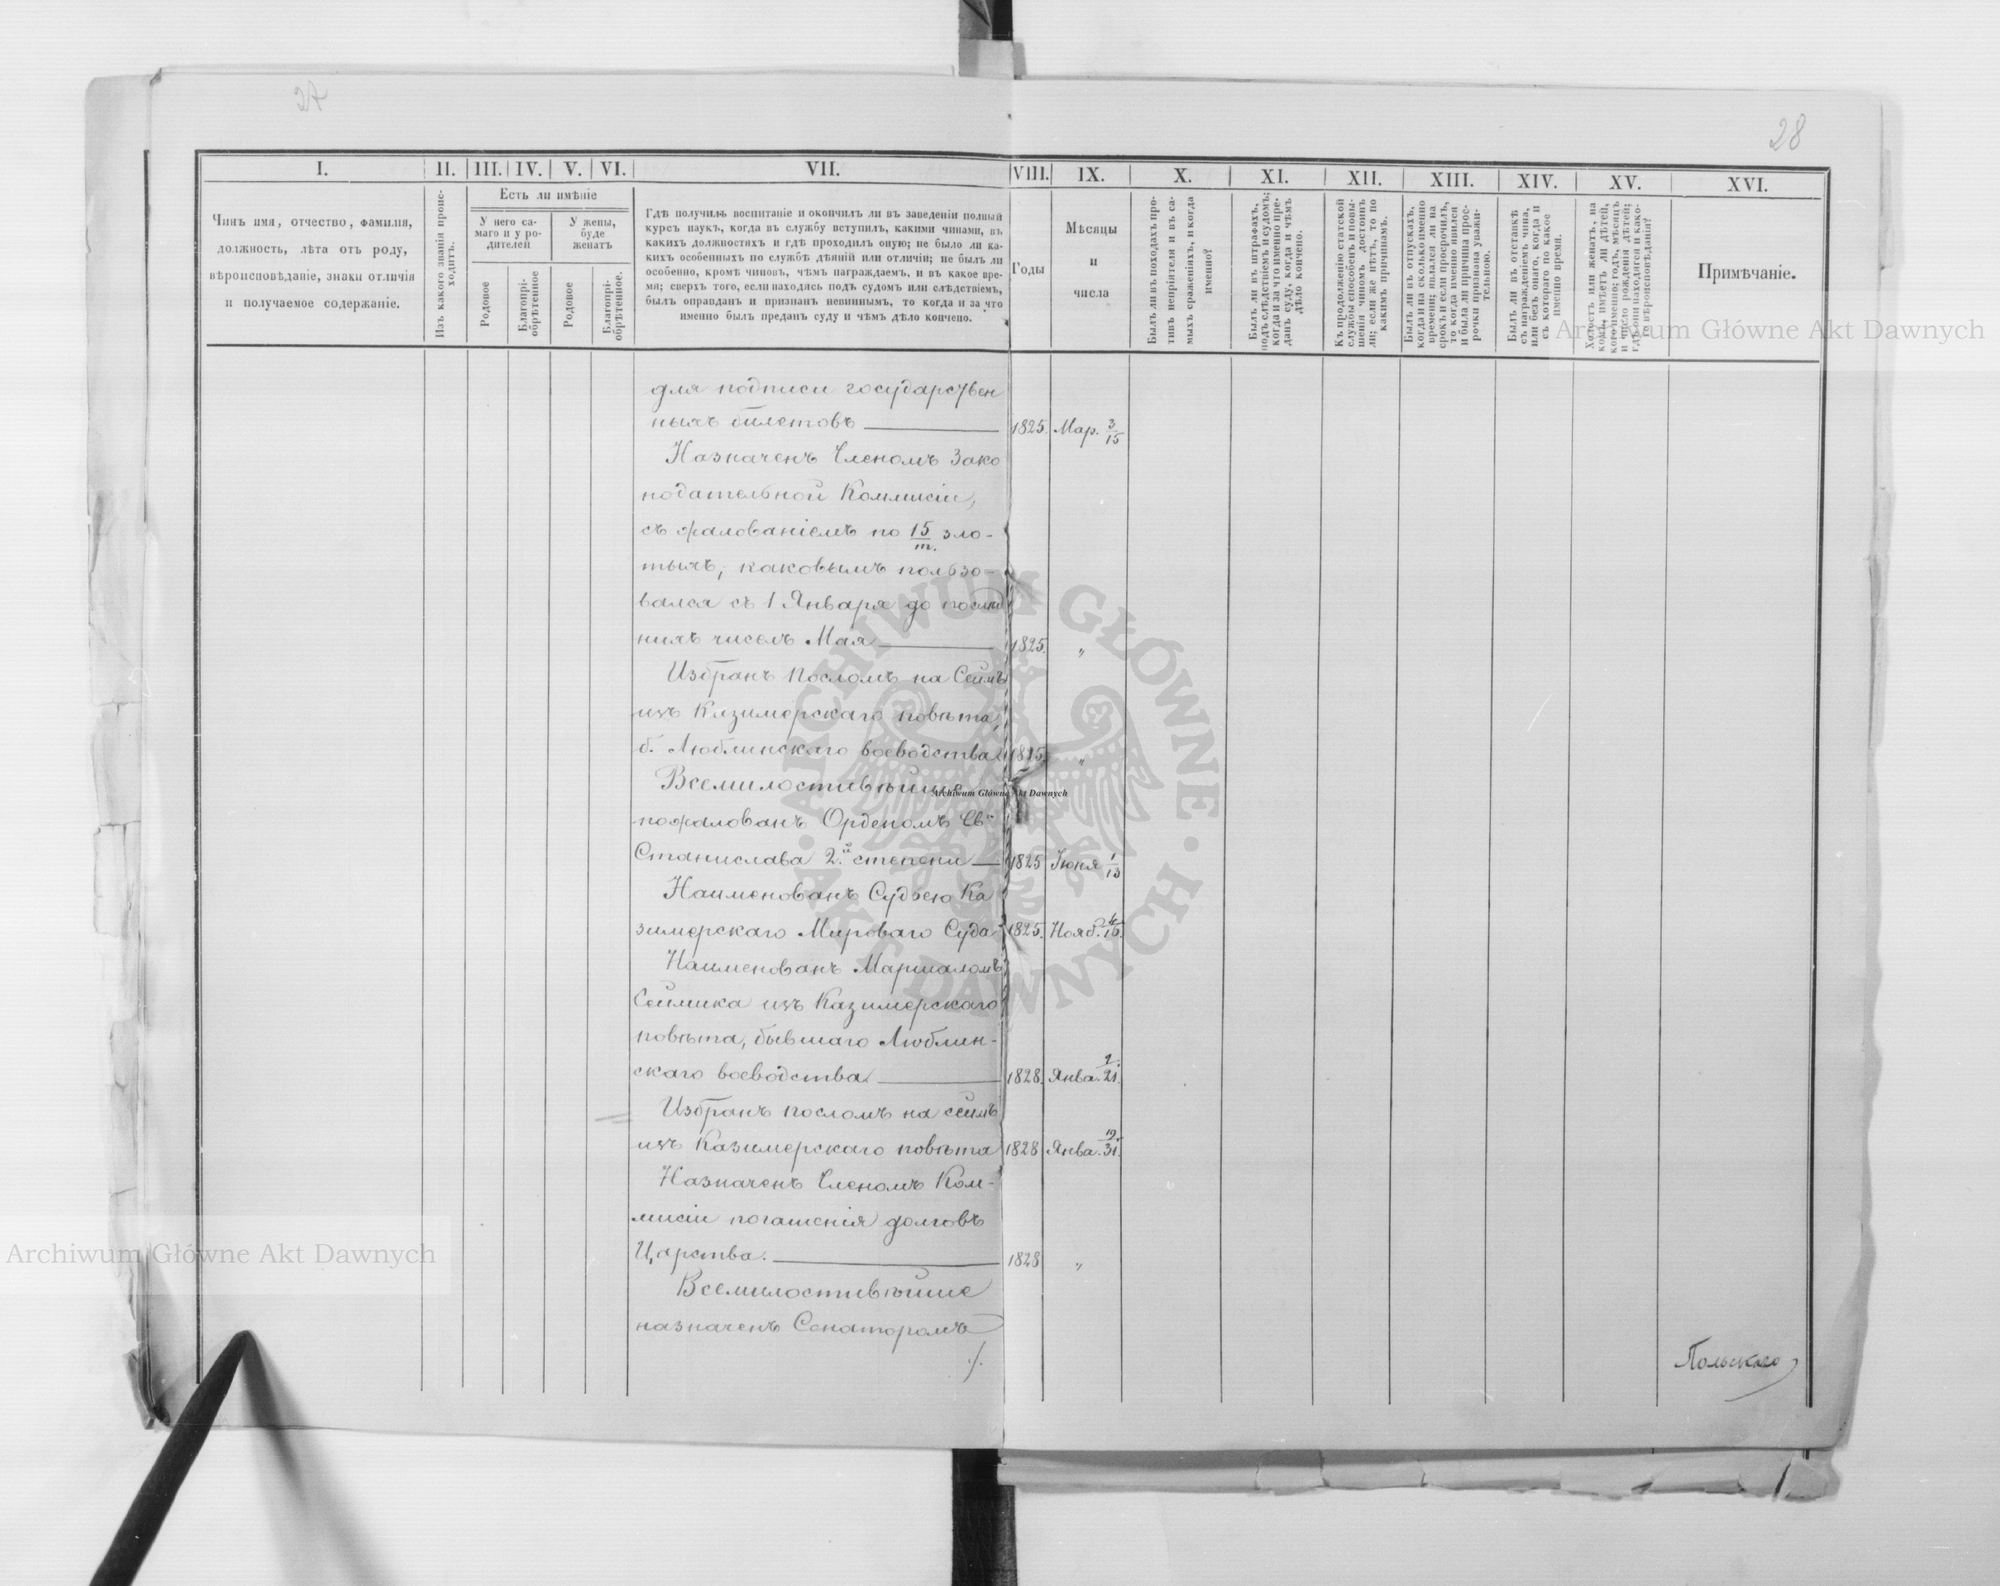 27
28
I.
II.
III.
IV.
V.
VI.
VII.
VIII.
IX.
X.
XI.
XII.
XIII.
XIV.
XV.
XVI.
Чинъ имя, отчество, фамилія,
должность, лѣта отъ роду,
вѣроисповѣданіе, знаки отличія
и получаемое содержаніе.
Изъ какого званія проис-
ходитъ.
Есть ли имѣніе
У него са-
маго и у ро-
дителей
У жены,
буде
женатъ
Родовое
Благопрі-
обрѣтенное
Родовое
Благопрі-
обрѣтенное.
Гдѣ получилъ воспитаніе и окончилъ ли въ заведеніи полный
курсъ наукъ, когда въ службу вступилъ, какими чинами, въ
какихъ должностяхъ и гдѣ проходилъ оную; не было ли ка-
кихъ особенныхъ по службѣ дѣяній или отличій; не былъ ли
особенно, кромѣ чиновъ, чѣмъ награждаемъ, и въ какое вре-
мя; сверхъ того, если находясь подъ судомъ или слѣдствіемъ,
былъ оправданъ и признанъ невиннымъ, то когда и за что
именно былъ преданъ суду и чѣмъ дѣло кончено.
Годы
Мѣсяцы
и
числа
Былъ ли въ походахъ про-
тивъ непріятеля и въ са-
мыхъ сраженіяхъ, и когда
именно?
Былъ ли въ штрафахъ,
подъ слѣдствіемъ и судомъ;
когда и за что именно пре-
данъ суду, когда и чѣмъ
дѣло кончено.
Къ продолженію статской
службы способенъ и повы-
шенія чиномъ достоинъ
ли; если же нѣтъ, то по
какимъ причинамъ.
Былъ ли въ отпускахъ,
когда и на сколько именно
времени; являлся ли на
срокъ и если просрочилъ,
то когда именно явился
и была ли причина прос-
рочки признана уважи-
тельною.
Былъ ли въ отставкѣ
съ награжденіемъ чина,
или безъ онаго, когда и
съ котораго по какое
именно время.
Холостъ или женатъ, на
комъ, имѣетъ ли дѣтей,
кого именно; годъ, мѣсяцъ
и число рожденія дѣтей;
гдѣ они находятся и како-
го вѣроисповѣданія?
Примѣчаніе.
для подписи государствен
ныхъ билетовъ 1825. Мар. 3/15
Назначенъ Членомъ Зако
нодательной Коммисіи,
съ жалованіемъ по 15/т. зло-
тыхъ, каковымъ пользо-
вался съ 1 Января до послѣд
нихъ чиселъ Мая 1825. „
Избранъ Посломъ на Сеймъ
изъ Казимерскаго повѣта
б. Люблинскаго воеводства 1825 „
Всемилостивѣйше
пожалованъ Орденомъ Св.
Станислава 2й степени 1825 Іюня 1/13
Наименованъ Судьею Ка
зимерскаго Мироваго Суда 1825. Нояб. 4/16.
Наименованъ Маршаломъ
Сеймика изъ Казимерскаго
повѣта, бывшаго Люблин-
скаго воеводства 1828. Янва. 9/21.
Избранъ посломъ на сеймъ
изъ Казимерскаго повѣта 1828 Янва. 19/31.
Назначенъ Членомъ Ком-
мисіи погашенія долговъ
Царства. 1828 „
Всемилостивѣйше
назначенъ Сенаторомъ
./.
Польскаго
Archiwum Główne Akt Dawnych
Archiwum Główne Akt Dawnych
Archiwum Główne Akt Dawnych
ARCHIWUM GŁÓWNE · AKT DAWNYCH ·